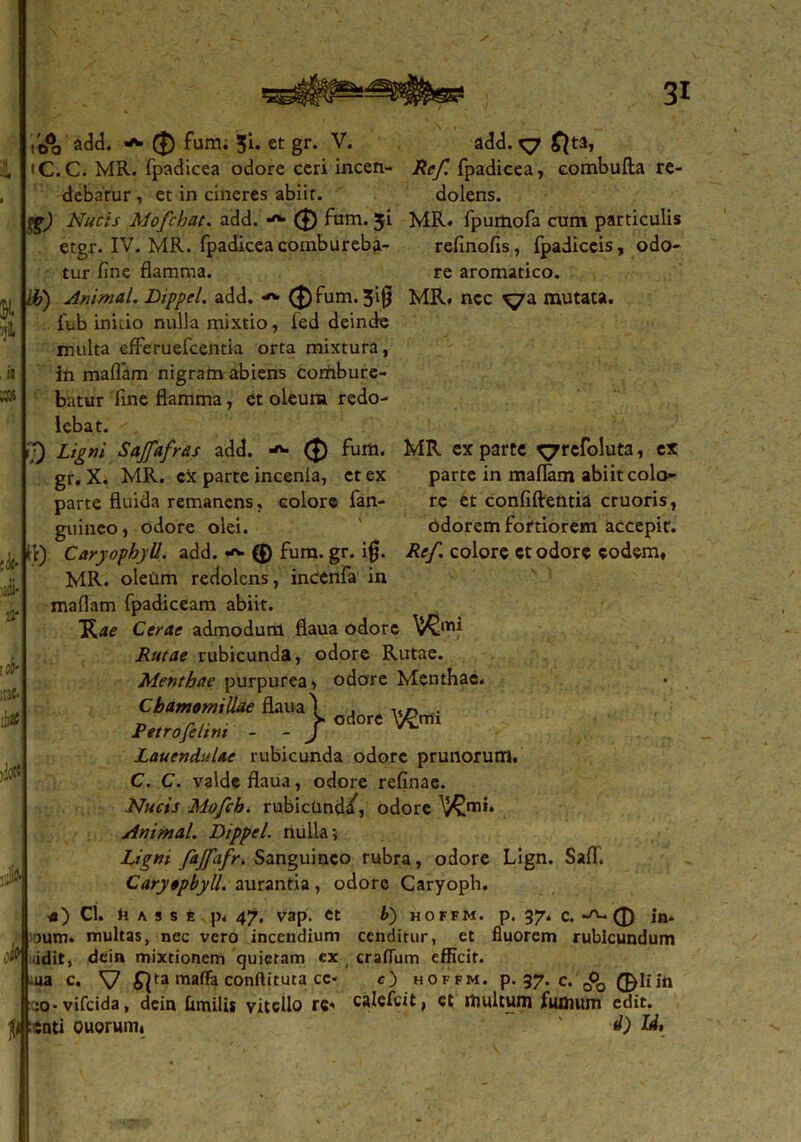 31
add. 🜺 ⦶ fum. ʒi. et gr. V.
C. C. MR. ſpadicea odore ceri incen-
debatur, et in cineres abiit.
gg) Nucis Moſchat. add. ⦶ fum. ʒi
etgr. IV. MR. ſpadicea combureba-
tur ſine flamma.
hh) Animal. Dippel. add. ⦶ fum. ʒiβ
ſub initio nulla mixtio, ſed deinde
multa efferueſcentia orta mixtura,
in maſſam nigram abiens combure-
batur ſine flamma, et oleum redo-
lebat.
ii) Ligni Saſſafras add. ⦶ fum.
gr. X. MR. ex parte incenſa, et ex
parte fluida remanens, colore ſan-
guineo, odore olei.
kk) Caryophyll. add. ⦶ fum. gr. iβ.
MR. oleum redolens, incenſa in
maſſam ſpadiceam abiit.
add. 🜄 Ωta,
Reſ. ſpadicea, combuſta re-
dolens.
MR. ſpumoſa cum particulis
reſinoſis, ſpadiceis, odo-
re aromatico.
MR. nec 🜄a mutata.
MR ex parte 🜄reſoluta, ex
parte in maſſam abiit colo-
re et conſiſtentia cruoris,
odorem fortiorem accepit.
Reſ. colore et odore eodem,
Rae Cerae admodum flaua odore V℞mi
Rutae rubicunda, odore Rutae.
Menthae purpurea, odore Menthae.
Chamomillae flaua } odore V℞mi
Petroſelini - - }
Lauendulae rubicunda odore prunorum.
C. C. valde flaua, odore reſinae.
Nucis Moſch. rubicunda, odore V℞mi.
Animal. Dippel. nulla;
Ligni ſaſſafr. Sanguineo rubra, odore Lign. Saſſ.
Caryophyll. aurantia, odore Caryoph.
a) Cl. HASSE p. 47. vap. et
oum. multas, nec vero incendium
idit, dein mixtionem quietam ex
ua c. 🜄 Ωta maſſa conſtituta ce-
co-viſcida, dein ſimilis vitello re-
enti ouorum.
b) HOFFM. p. 37. c. ⦶ in-
cenditur, et fluorem rubicundum
craſſum efficit.
c) HOFFM. p. 37. c. ⦶li in
calefcit, et multum fumum edit.
d) Id.